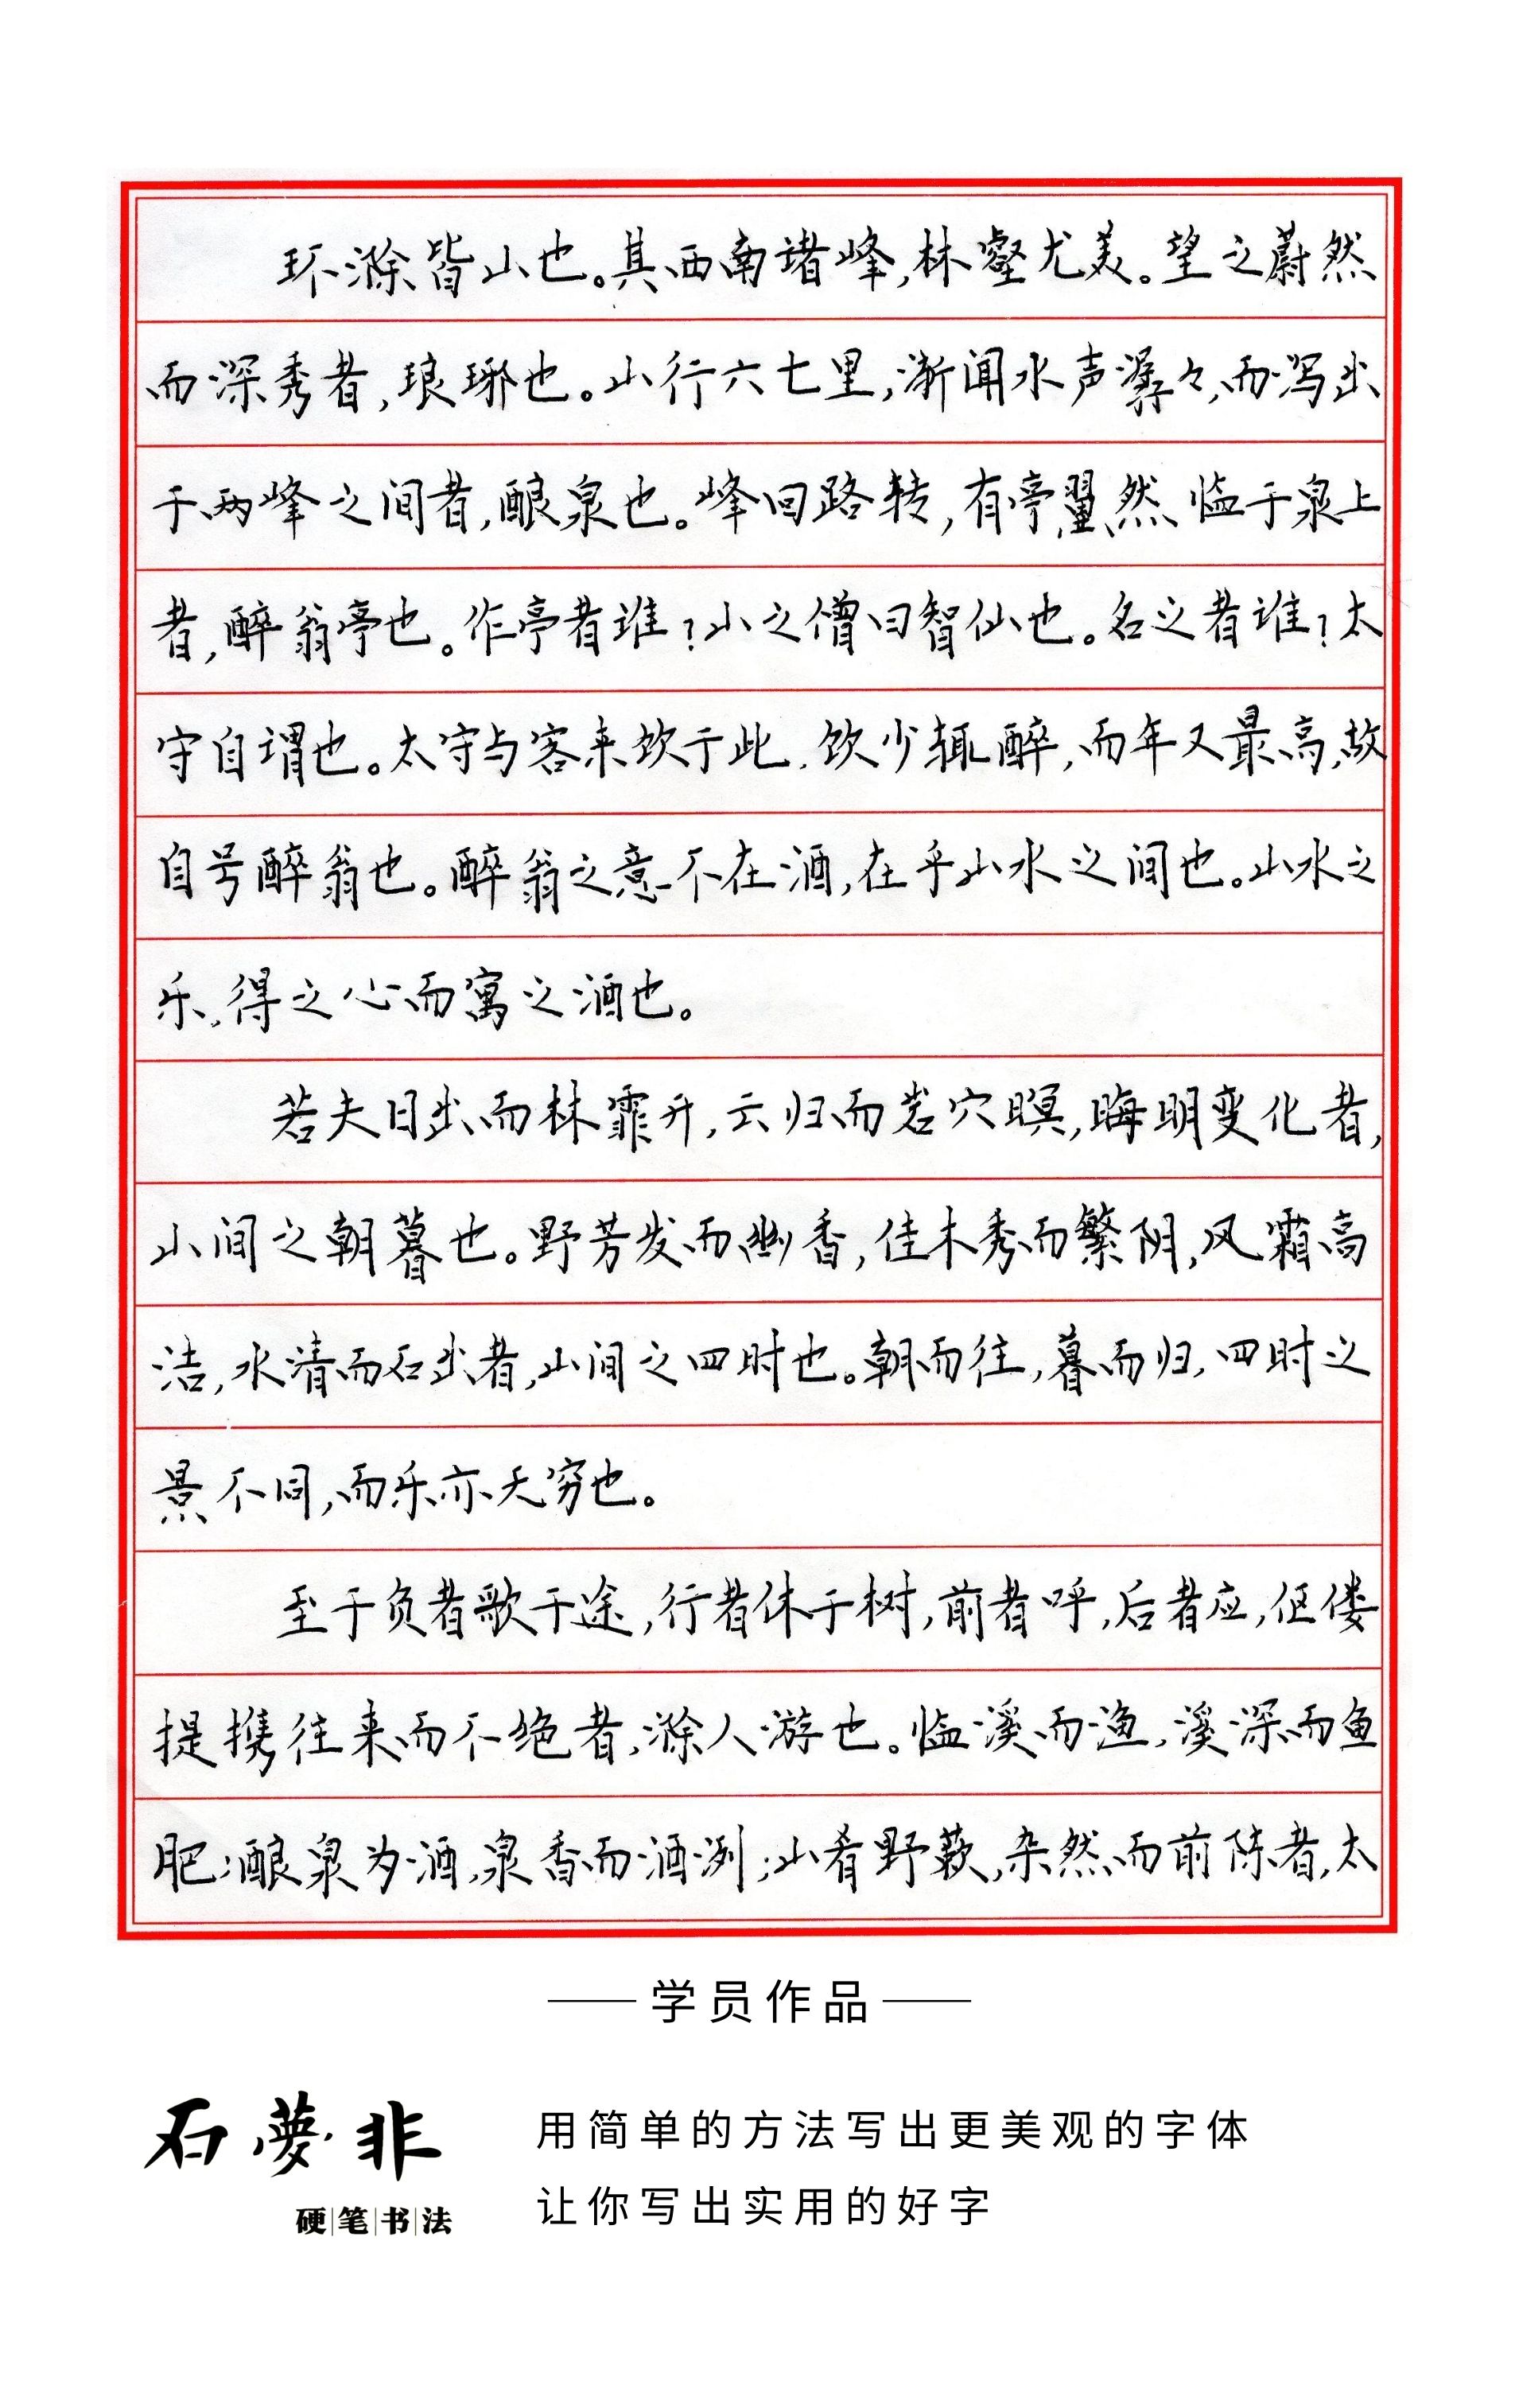 环滁皆山也。其西南诸峰,林壑尤美。望之蔚然
而深秀者,琅琊也。山行六七里,渐闻水声潺々,而泻出
于两峰之间者,酿泉也。峰回路转,有亭翼然临于泉上
者,醉翁亭也。作亭者谁?山之僧曰智仙也。名之者谁?太
守自谓也。太守与客来饮于此,饮少辄醉,而年又最高,故
自号醉翁也。醉翁之意不在酒,在乎山水之间也。山水之
乐,得之心而寓之酒也。
若夫日出而林霏开,云归而岩穴暝,晦明变化者,
山间之朝暮也。野芳发而幽香,佳木秀而繁阴,风霜高
洁,水清而石出者,山间之四时也。朝而往,暮而归,四时之
景不同,而乐亦无穷也。
至于负者歌于途,行者休于树,前者呼,后者应,伛偻
提携往来而不绝者,滁人游也。临溪而渔,溪深而鱼
肥;酿泉为酒,泉香而酒洌;山肴野蔌,杂然而前陈者,太
学员作品
石夢非
硬|笔|书|法
用简单的方法写出更美观的字体
让你写出实用的好字